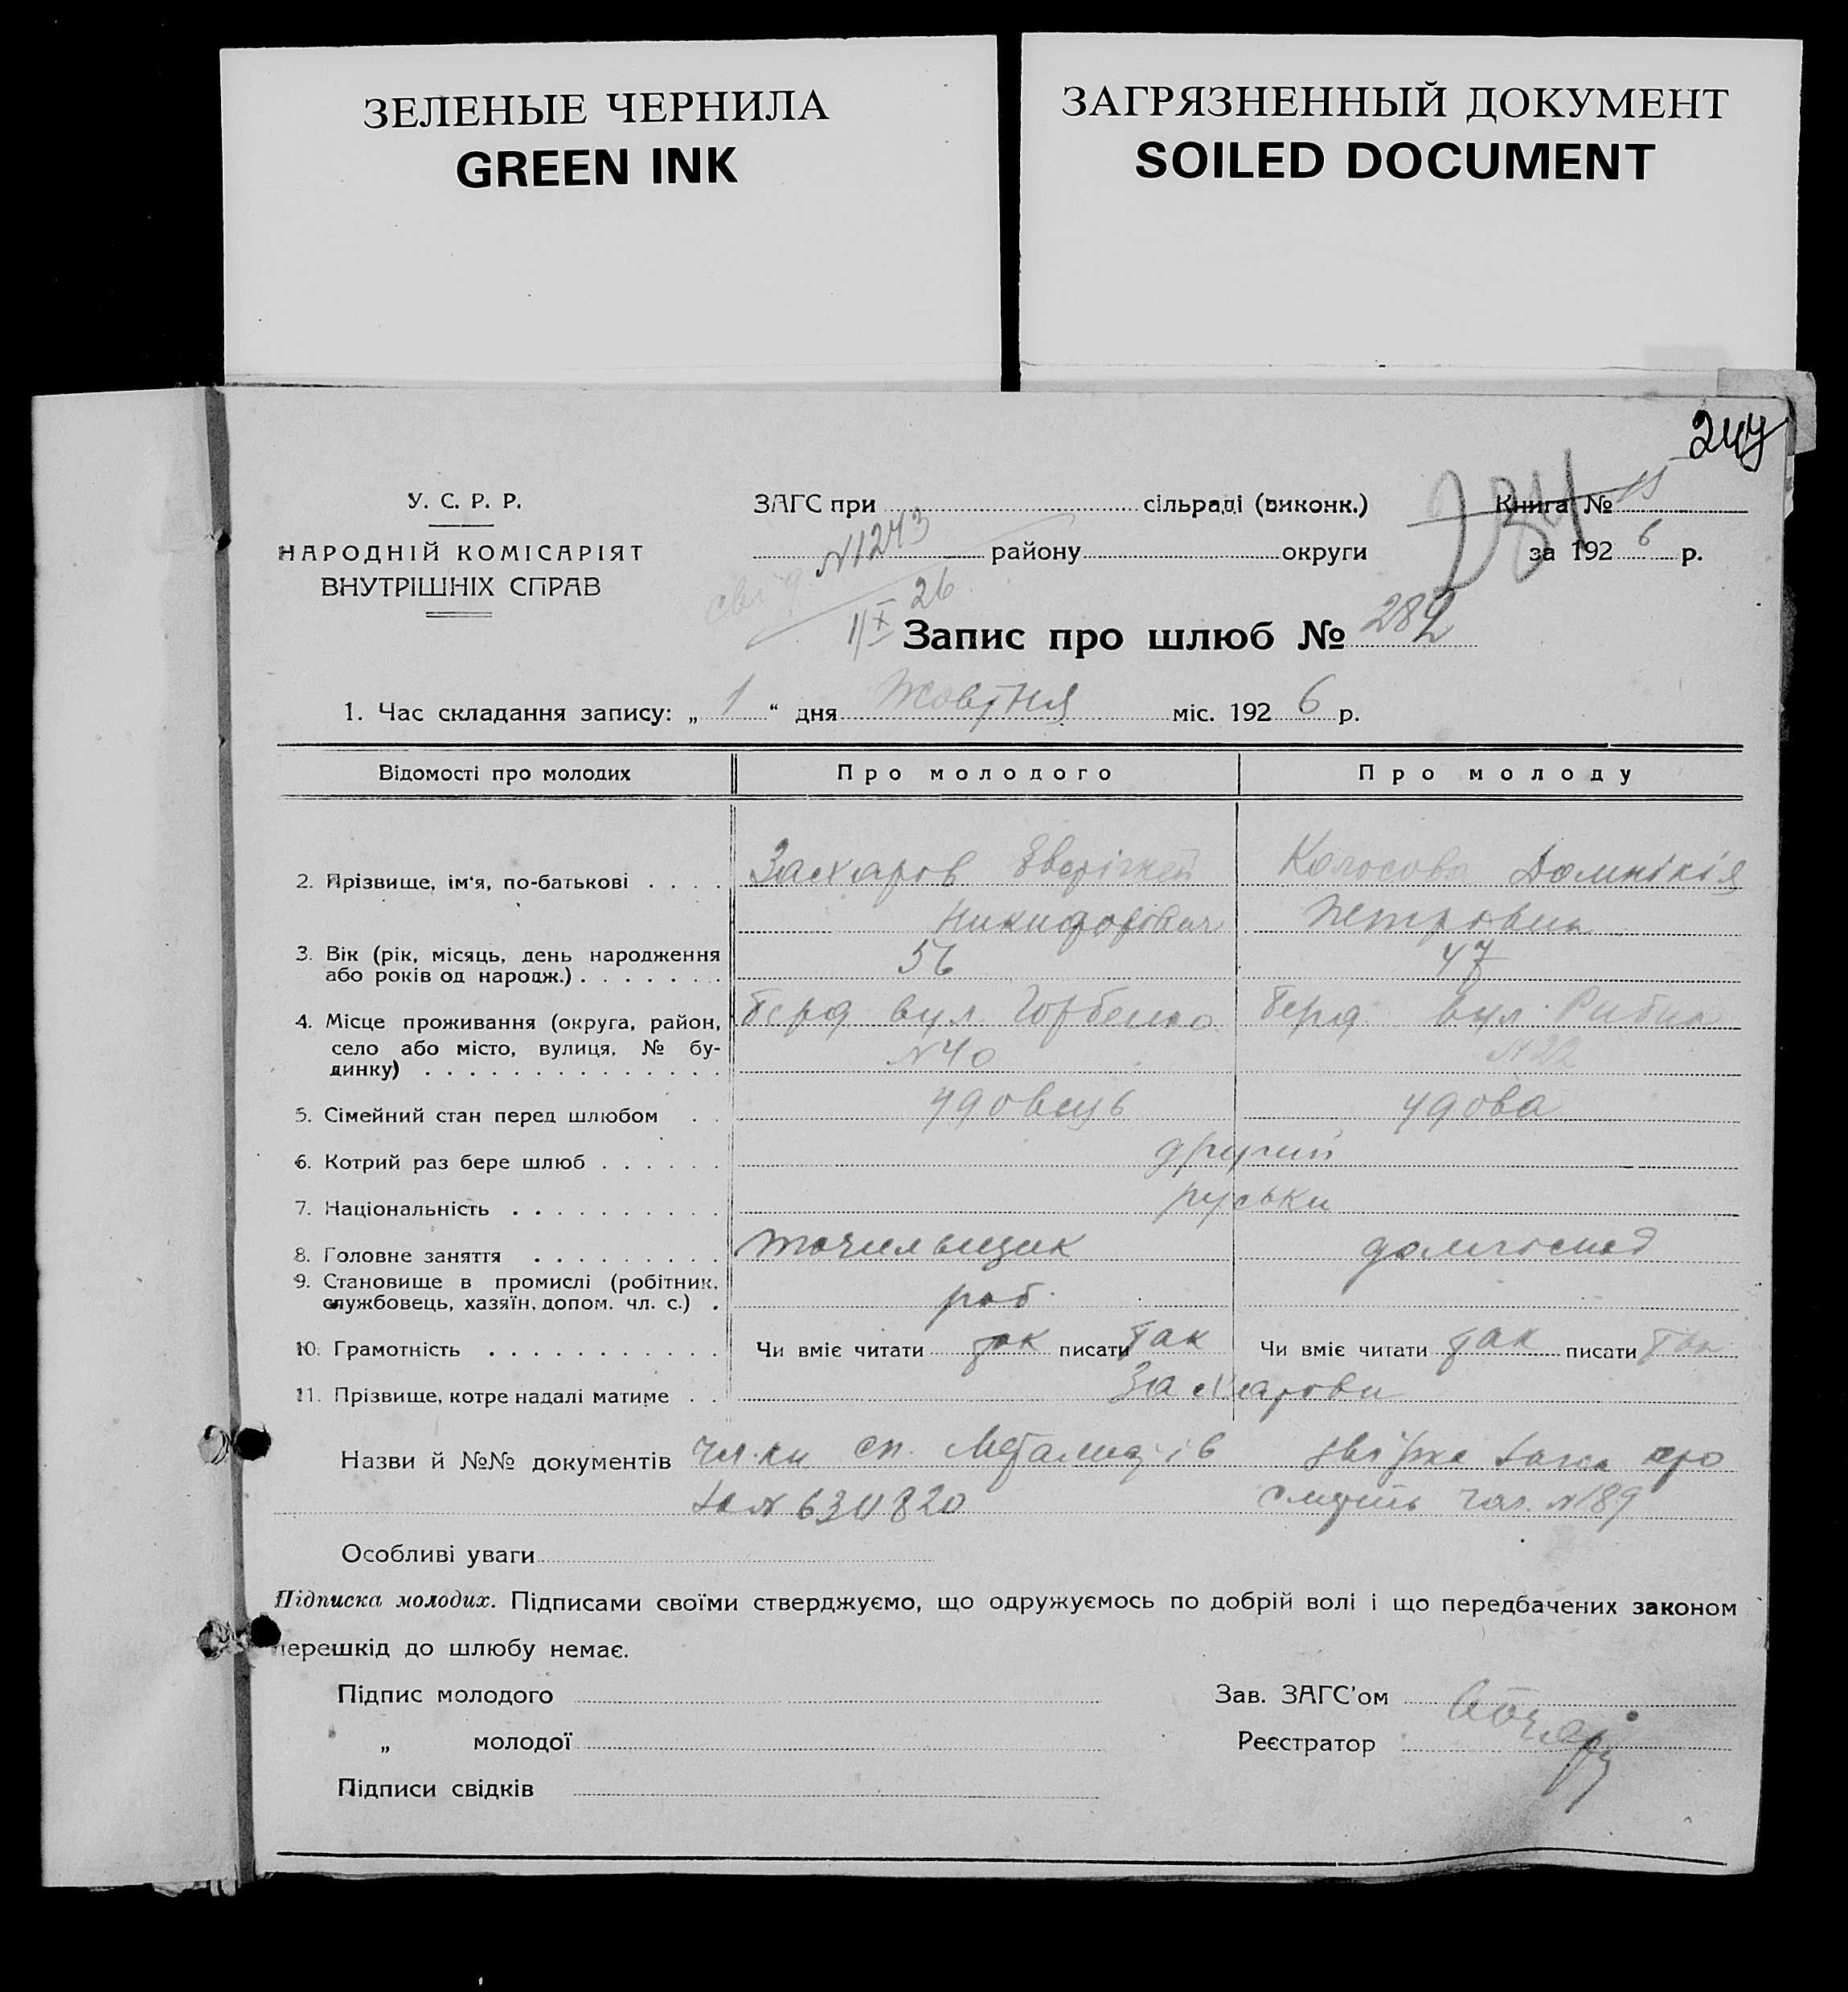 ЗЕЛЕНЫЕ ЧЕРНИЛА
GREEN INK
ЗАГРЯЗНЕННЫЙ ДОКУМЕНТ
SOILED DOCUMENT
244
234
У. С. Р. Р.
НАРОДНІЙ КОМІСАРІЯТ
ВНУТРІШНІХ СПРАВ
ЗАГС при сільраді (виконк.)
району округи
N1243
1/X 26
Книга №
за 1926 р.
Запис про шлюб № 282
1. Час складання запису: „1“ дня Жовтня міс. 1926 р.
Відомості про молодих Про молодого Про молоду
2. Прізвище, ім'я, по-батькові . . . . Захаров Колосова Домнікія
Никифорович Петровна
3. Вік (рік, місяць, день народження
або років од народж.) . . . . . . . 56 47
4. Місце проживання (округа, район, Берд вул. Горбенко Берд. вул. Рибна
село або місто, вулиця, № бу-
динку) . . . . . . . . . . . . . . N40 N22
5. Сімейний стан перед шлюбом . . удовець удова
6. Котрий раз бере шлюб . . . . . . другий
7. Національність . . . . . . . . . . руськи
8. Головне заняття . . . . . . . . . точильщик домгоспод
9. Становище в промислі (робітник,
службовець, хазяїн, допом. чл. с.) . роб.
10. Грамотність . . . . . . . . . . . Чи вміє читати так писати так Чи вміє читати так писати так
11. Прізвище, котре надалі матиме . . Захарови
Назви й №№ документів чл. кн сп. Металистів про
N 630820 смерть N189
Особливі уваги
Підписка молодих. Підписами своїми стверджуємо, що одружуємось по добрій волі і що передбачених законом
перешкід до шлюбу немає.
Підпис молодого Зав. ЗАГС'ом
„ молодої Реєстратор
Підписи свідків